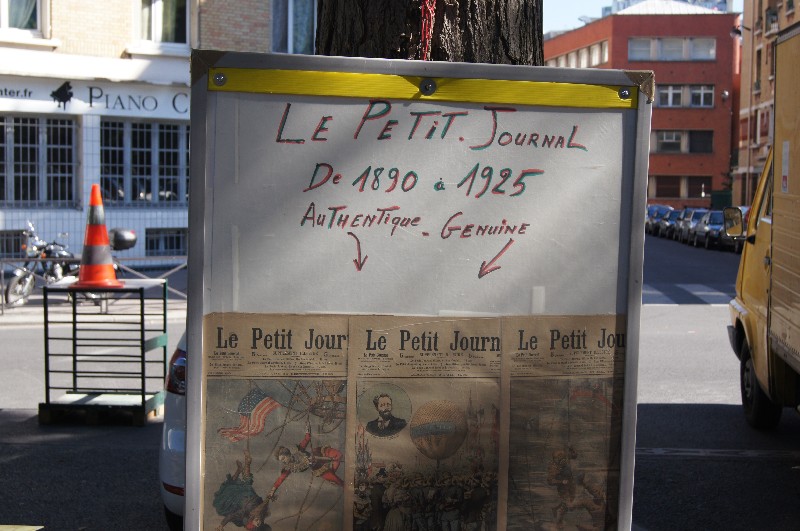 nter.fr PIANO C
LE PETIT. JOURNAL
De 1890 à 1925
AUTHENTIQUE - GENUINE
Le Petit Jour
Le Petit Journ
Le Petit Jou